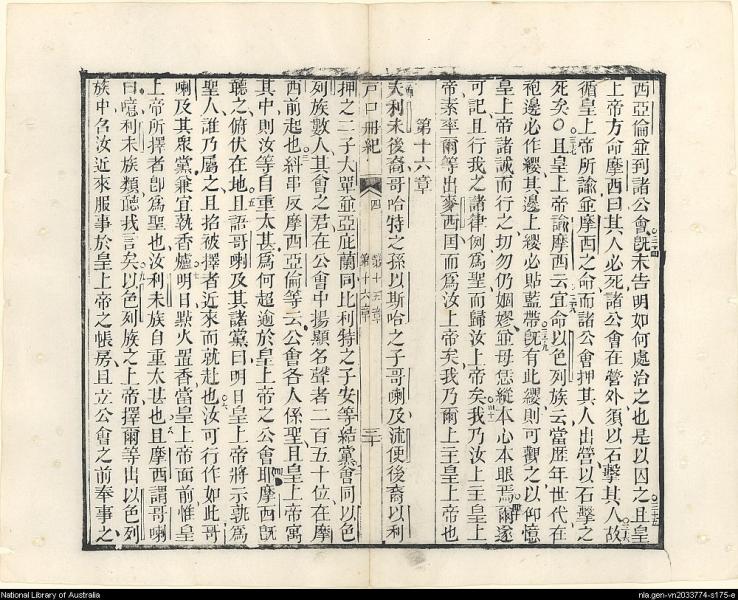 西亞倫並到諸公會既未告明如何處治之也是以囚之且皇
上帝方命摩西曰其人必死諸公會在營外須以石擊其人故
循皇上帝所諭並摩西之命而諸公會押其人出營以石擊之
死矣○且皇上帝諭摩西云宜命以色列族云當歷年世代在
袍邊必作纓其邊上纓必貼藍帶既有此纓則可觀之以仰憶
皇上帝諸誡而行之切勿仍姻嫪並毋恁縱本心本眼焉爾遂
可記且行我之諸律例為聖而歸汝上帝矣我乃汝上主皇上
帝素率爾等出麥西囯而為汝上帝矣我乃爾上主皇上帝也
第十六章
夫利未後裔哥哈特之孫以斯哈之子哥喇及流便後裔以利
戶口冊紀 四 第十五章 第十六章 三十
押之二子大單並亞庇蘭同比利特之子安等結黨會同以色
列族數人其會之君在公會中揚顯名聲者二百五十位在摩
西前起也糾串反摩西亞倫等云公會各人係聖且皇上帝寓
其中則汝等自重太甚為何超逾於皇上帝之公會耶摩西既
聽之俯伏在地且語哥喇及其諸黨曰明日皇上帝將示孰為
聖人誰乃屬之且招被擇者近來而就赴也汝可行作如此哥
喇及其眾黨兼宜執香爐明日㸃火置香當皇上帝面前惟皇
上帝所擇者卽為聖也汝利未族自重太甚也且摩西謂哥喇
曰噫利未族類聽我言矣以色列族之上帝擇爾等出以色列
族中名汝近來服事於皇上帝之帳房且立公會之前奉事之
National Library of Australia
nla.gen-vn2033774-s175-e